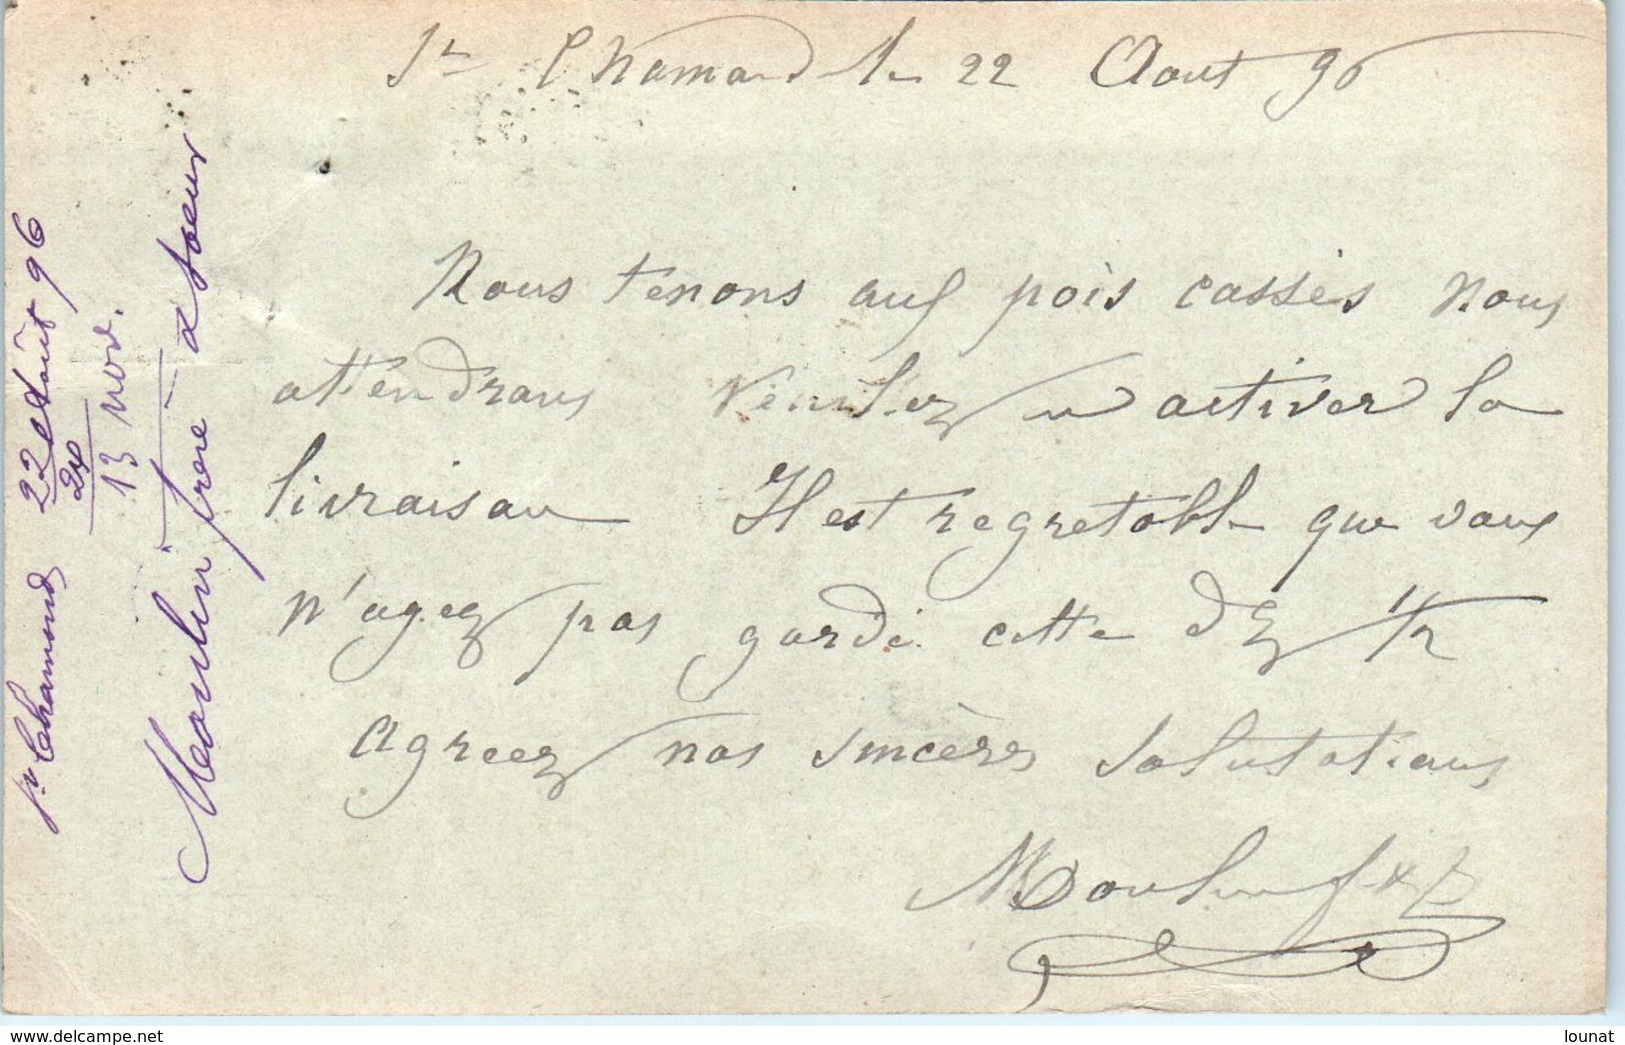 St Chamond le 22 Aout 96
Nous tenons aux pois cassés nous
attendrons Veuillez en activer la
livraison Il est regretable que vous
n'ayez pas gardé cette dz 1/2
Agreez nos sincères salutations
Moulin f
St Chamond 22 Août 96
24
13 nov.
Moulin frere & soeur
www.delcampe.net
lounat